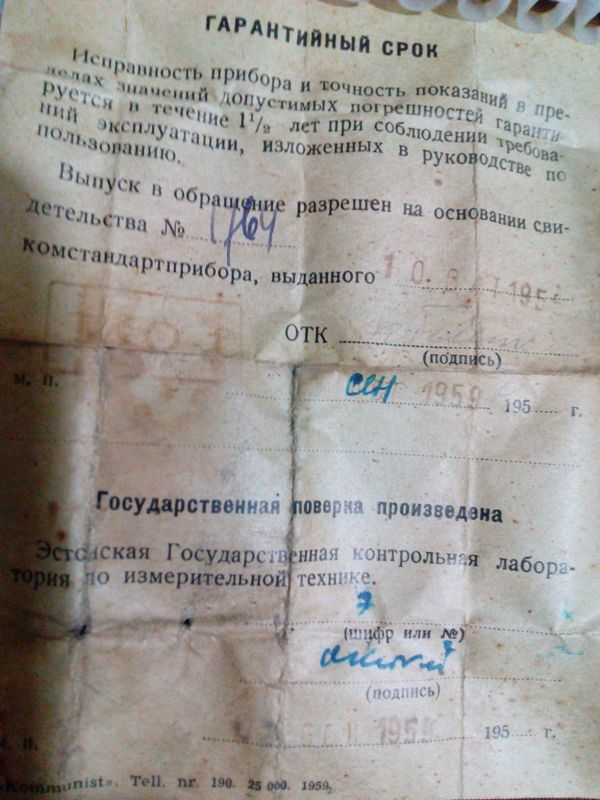 ГАРАНТИЙНЫЙ СРОК
Исправность прибора и точность показаний в пре-
делах значений допустимых погрешностей гаранти-
руется в течение 1½ лет при соблюдении требова-
ний эксплуатации, изложенных в руководстве по
пользованию.
Выпуск в обращение разрешен на основании сви-
детельства № 1764
комстандартприбора, выданного 10.
ОТК
(подпись)
м. п.
сен 1959 195 г.
Государственная поверка произведена
Эстонская Государственная контрольная лабора-
тория по измерительной технике.
7
(шифр или №)
(подпись)
м. п. 195 г.
«Kommunist». Tell. nr. 190. 25 000. 1959.